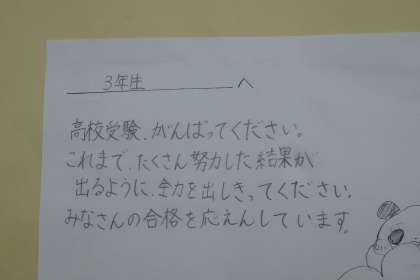 3年生 へ
高校受験、がんばってください。
これまで、たくさん努力した結果が
出るように、全力を出しきってください。
みなさんの合格を応えんしています。